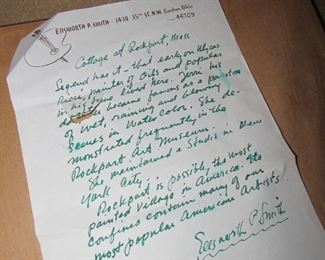 ELLSWORTH P. SMITH - 1430 35TH ST. N.W. Canton, Ohio
44709
Cottage at Rockport, Mass
Legend has it - that early on Ulysses
Ricci, painter of Oils and popular
in his time lived here. Jerri his
daughter became famous as a
of wet, raining and blowing
Scenes in Water Color. She de-
monstrated frequently in the
Rockport Art Museum.
She maintained a Studio in New
York City.
Rockport is possibly the most
painted Village in America. Its
confines contain many of our
most popular American Artists.
Ellsworth P. Smith